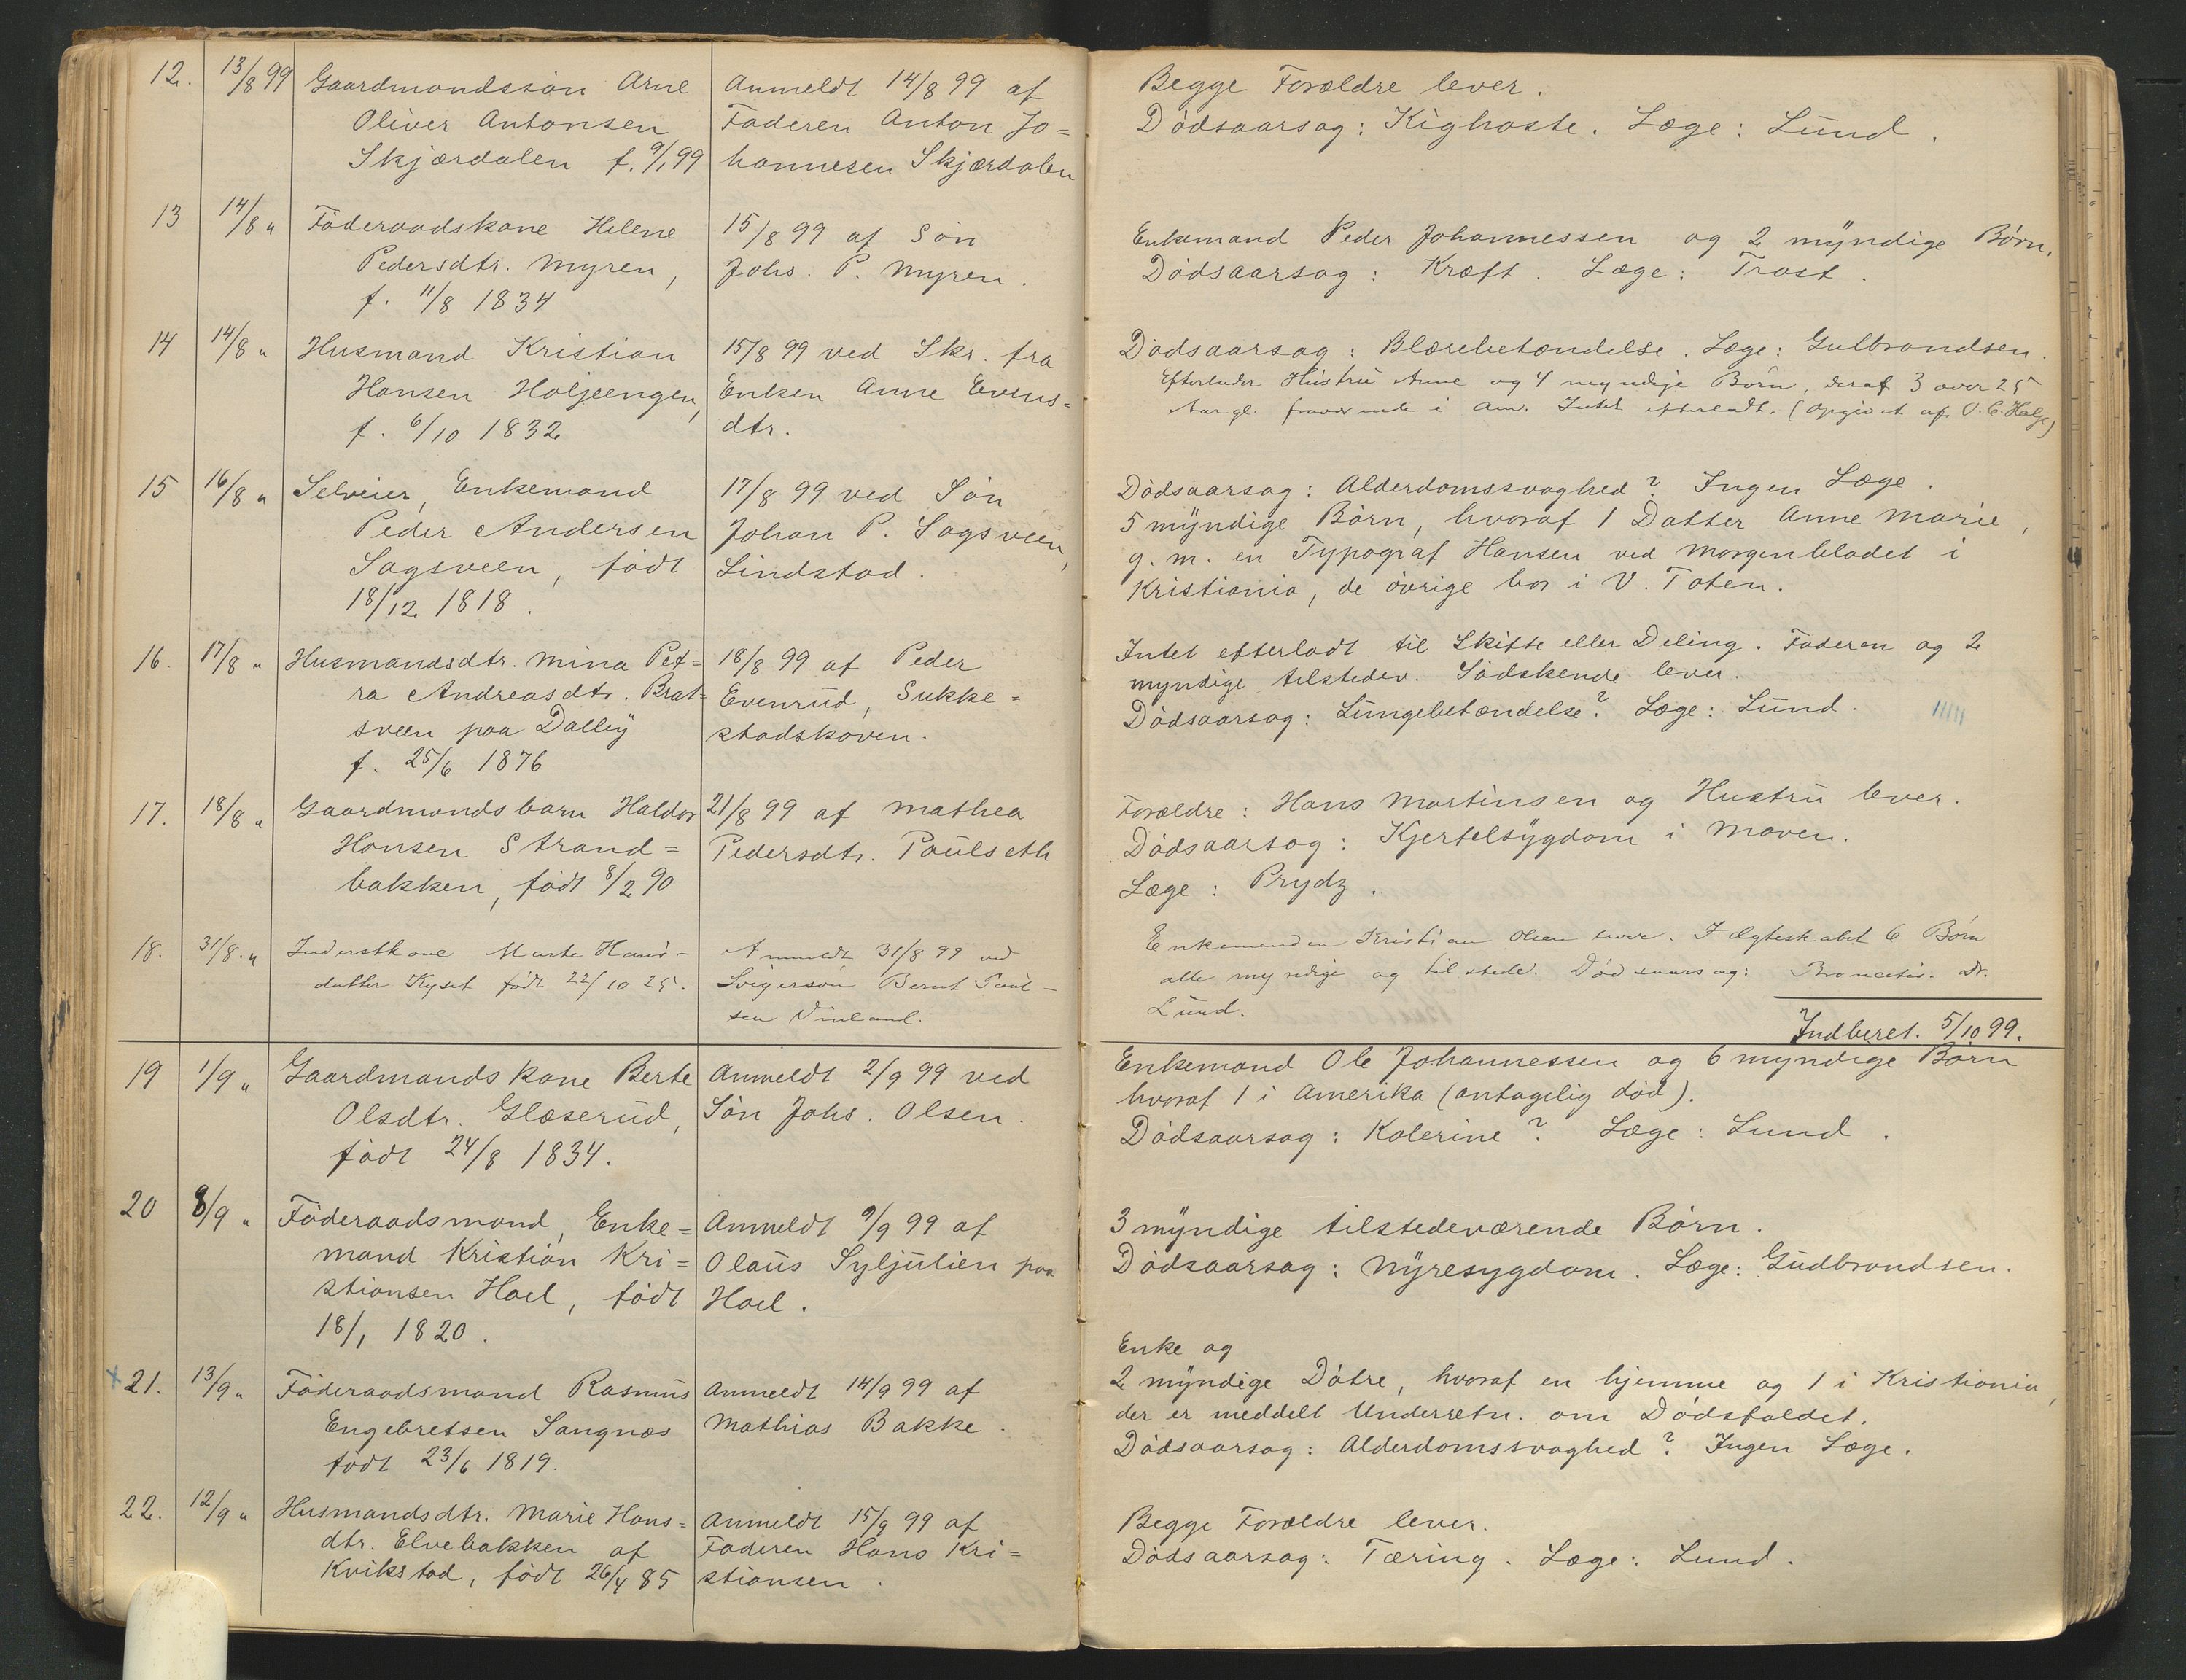 12. 13/8 99 Gaardmandssøn Arne
Oliver Antonsen
Skjærdalen f. 9/1 99
Anmeldt 14/8 99 af
Faderen Anton Jo=
hannesen Skjærdalen
Begge Forældre lever.
Dødsaarsag: Kighoste. Læge: Lund.
13 14/8 " Føderaadskone Helene
Pedersdtr. Myren,
f. 11/8 1834
15/8 99 af Søn
Johs. P. Myren.
Enkemand Peder Johannessen og 2 myndige Børn.
Dødsaarsag: Kræft. Læge: Trost.
14 14/8 " Husmand Kristian
Hansen Holjeengen,
f. 6/10 1832
15/8 99 ved Skr. fra
Enken Anne Evens=
dtr.
Dødsaarsag: Blærebetændelse. Læge: Gulbrandsen.
Efterlader Hustru Anne og 4 myndige Børn, deraf 3 over 25
Aar gl. fraværende i Am. Intet efterladt. (Opgivet af O. C. Holje)
15 16/8 " Selveier, Enkemand
Peder Andersen
Sagsveen, født
18/12 1818.
17/8 99 ved Søn
Johan P. Sagsveen,
Lindstad.
Dødsaarsag: Alderdomssvaghed? Ingen Læge.
5 myndige Børn, hvoraf 1 Datter Anne Marie,
g. m. en Typograf Hansen ved Morgenbladet i
Kristiania, de øvrige bor i V. Toten.
16. 17/8 " Husmandsdtr. Mina Pet=
ra Andreasdtr. Brat=
sveen paa Dalby
f. 25/6 1876
18/8 99 af Peder
Evenrud, Sukke=
stadskoven.
Intet efterladt til Skifte eller Deling. Faderen og 2
myndige tilstedev. Sødskende lever.
Dødsaarsag: Lungebetændelse? Læge: Lund.
17. 18/8 " Gaardmandsbarn Haldor
Hansen Strand=
bakken, født 8/2 90
21/8 99 af Mathea
Pedersdtr. Paulseth
Forældre: Hans Martinsen og Hustru lever.
Dødsaarsag: Kjertelsygdom i Maven.
Læge: Prydz.
18. 31/8. " Inderstkone Marte Hans-
datter Kyset født 22/10 25.
Anmeldt 31/8 99 ved
Svigersøn Bernt Paul-
sen
Enkemanden Kristian Olsen lever. I Ægteskabet 6 Børn
alle myndige og tilstede. Dødsaarsag: Broncetis. Dr.
Lund.
Indberet. 5/10 99.
19 1/9 " Gaardmandskone Berte
Olsdtr. Glæserud,
født 24/8 1834.
Anmeldt 2/9 99 ved
Søn Johs. Olsen.
Enkemand Ole Johannessen og 6 myndige Børn
hvoraf 1 i Amerika (antagelig død).
Dødsaarsag: Kolerine? Læge: Lund.
20 8/9 " Føderaadsmand, Enke=
mand Kristian Kri=
stiansen Hoel, født
18/1 1820.
Anmeldt 9/9 99 af
Olaus Syljulien paa
Hoel.
3 myndige tilstedeværende Børn.
Dødsaarsag: Nyresygdom. Læge: Gudbrandsen.
x 21. 13/9 " Føderaadsmand Rasmus
Engebretsen Sangnæs
født 23/6 1819.
Anmeldt 14/9 99 af
Mathias Bakke.
Enke og
2 myndige Døtre, hvoraf en hjemme og 1 i Kristiania,
der er meddelt Underretn. om Dødsfaldet.
Dødsaarsag: Alderdomssvaghed? Ingen Læge.
22. 12/9 " Husmandsdtr. Marie Hans=
dtr. Elvebakken af
Kvikstad, født 26/4 85
Anmeldt 15/9 99 af
Faderen Hans Kri=
stiansen.
Begge Forældre lever.
Dødsaarsag: Tæring. Læge: Lund.